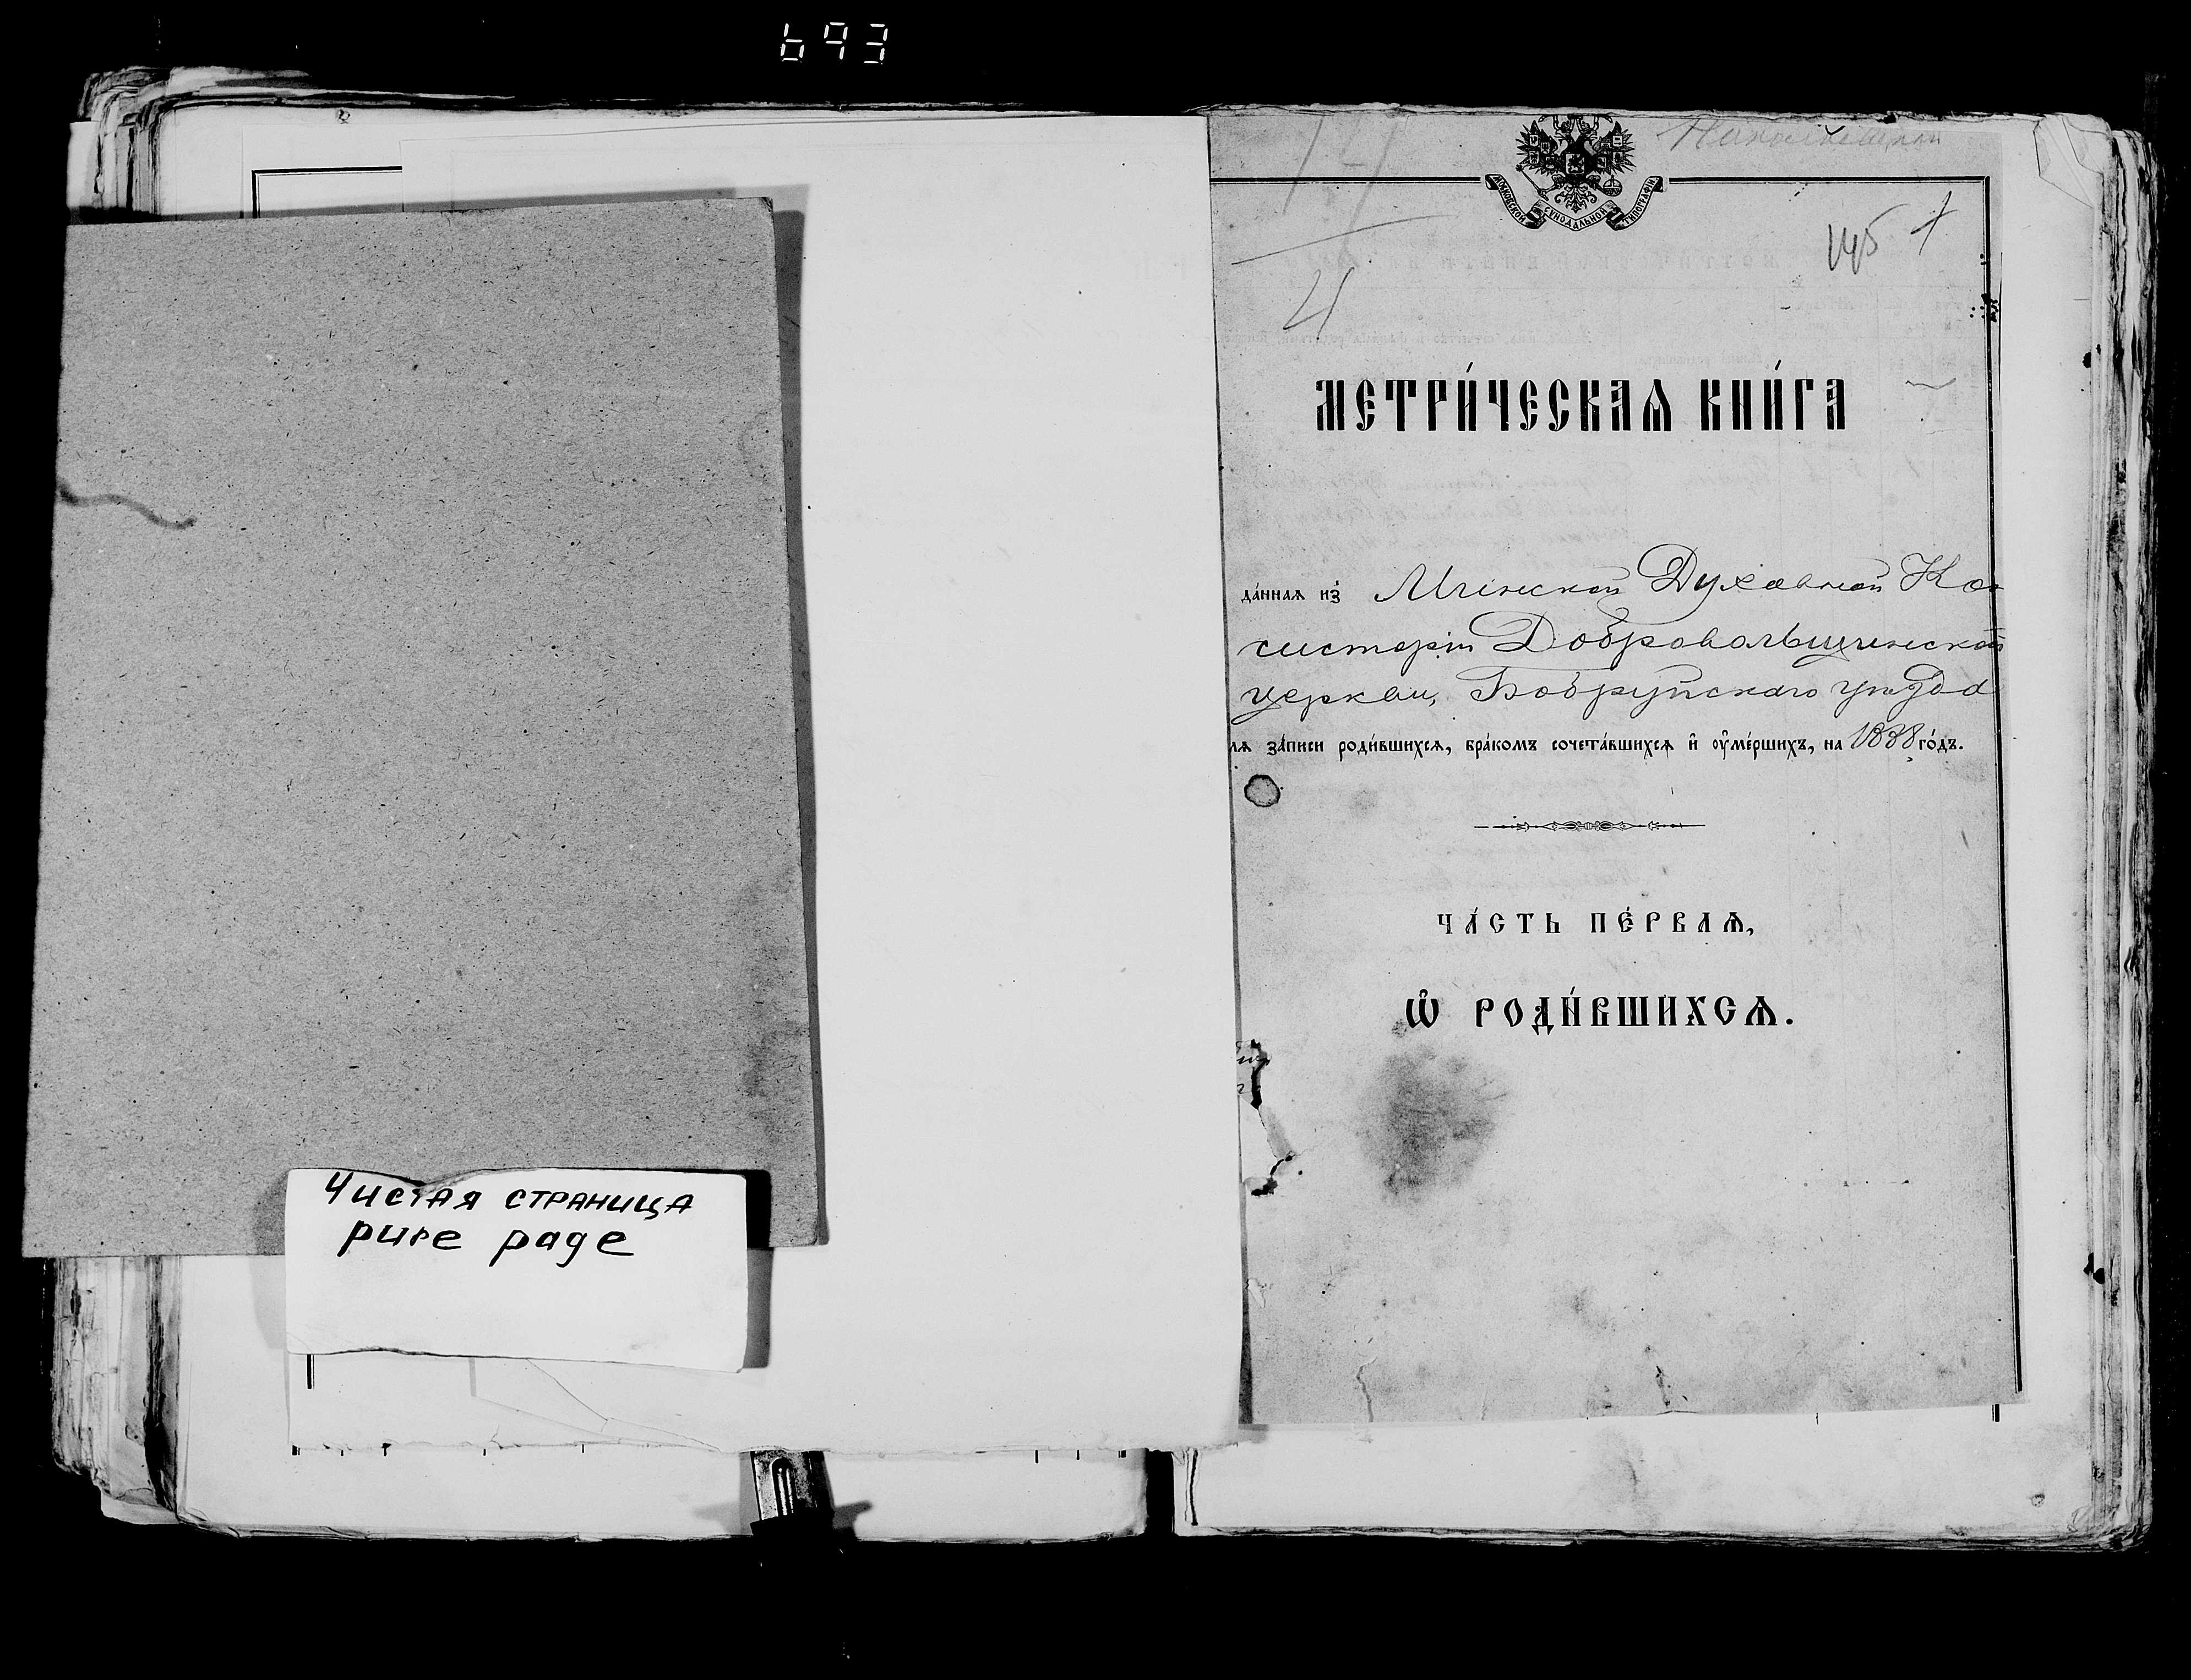 693
Чистая страница
pure page
МОСКОВСКОЙ СѴНОДАЛЬНОЙ ТИПОГРАФІИ
145 1
4
МЕТРИ́ЧЕСКАѦ КНИ́ГА
да́ннаѧ из̾ Минской Духовной Кон
систоріи Добровольщинской
церкви, Бобруйскаго уѣзда
лѧ за́писи роди́вшихсѧ, бра́комъ сочета́вшихсѧ и҆ ᲂу҆ме́ршихъ, на 1888 го́дъ.
ЧА́СТЬ ПЕ́РВАѦ,
Ѽ РОДИ́ВШИХСѦ.